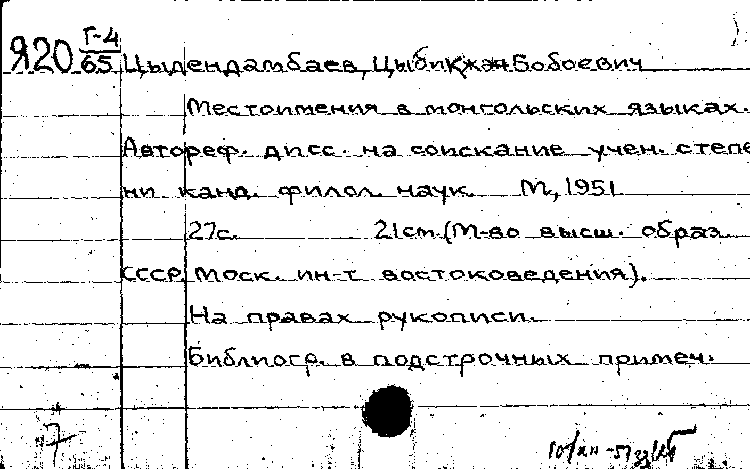 Я20 Г-4
65 Цыдендамбаев, Цыбикжан Бобоевич
Местоимения в монгольских языках.
Автореф. дисс. на соискание учен. степе
ни канд. филол. наук. М, 1951
27с. 21см (М-во высш. образ.
СССР, Моск. ин-т востоковедения).
На правах рукописи.
Библиогр. в подстрочных примеч.